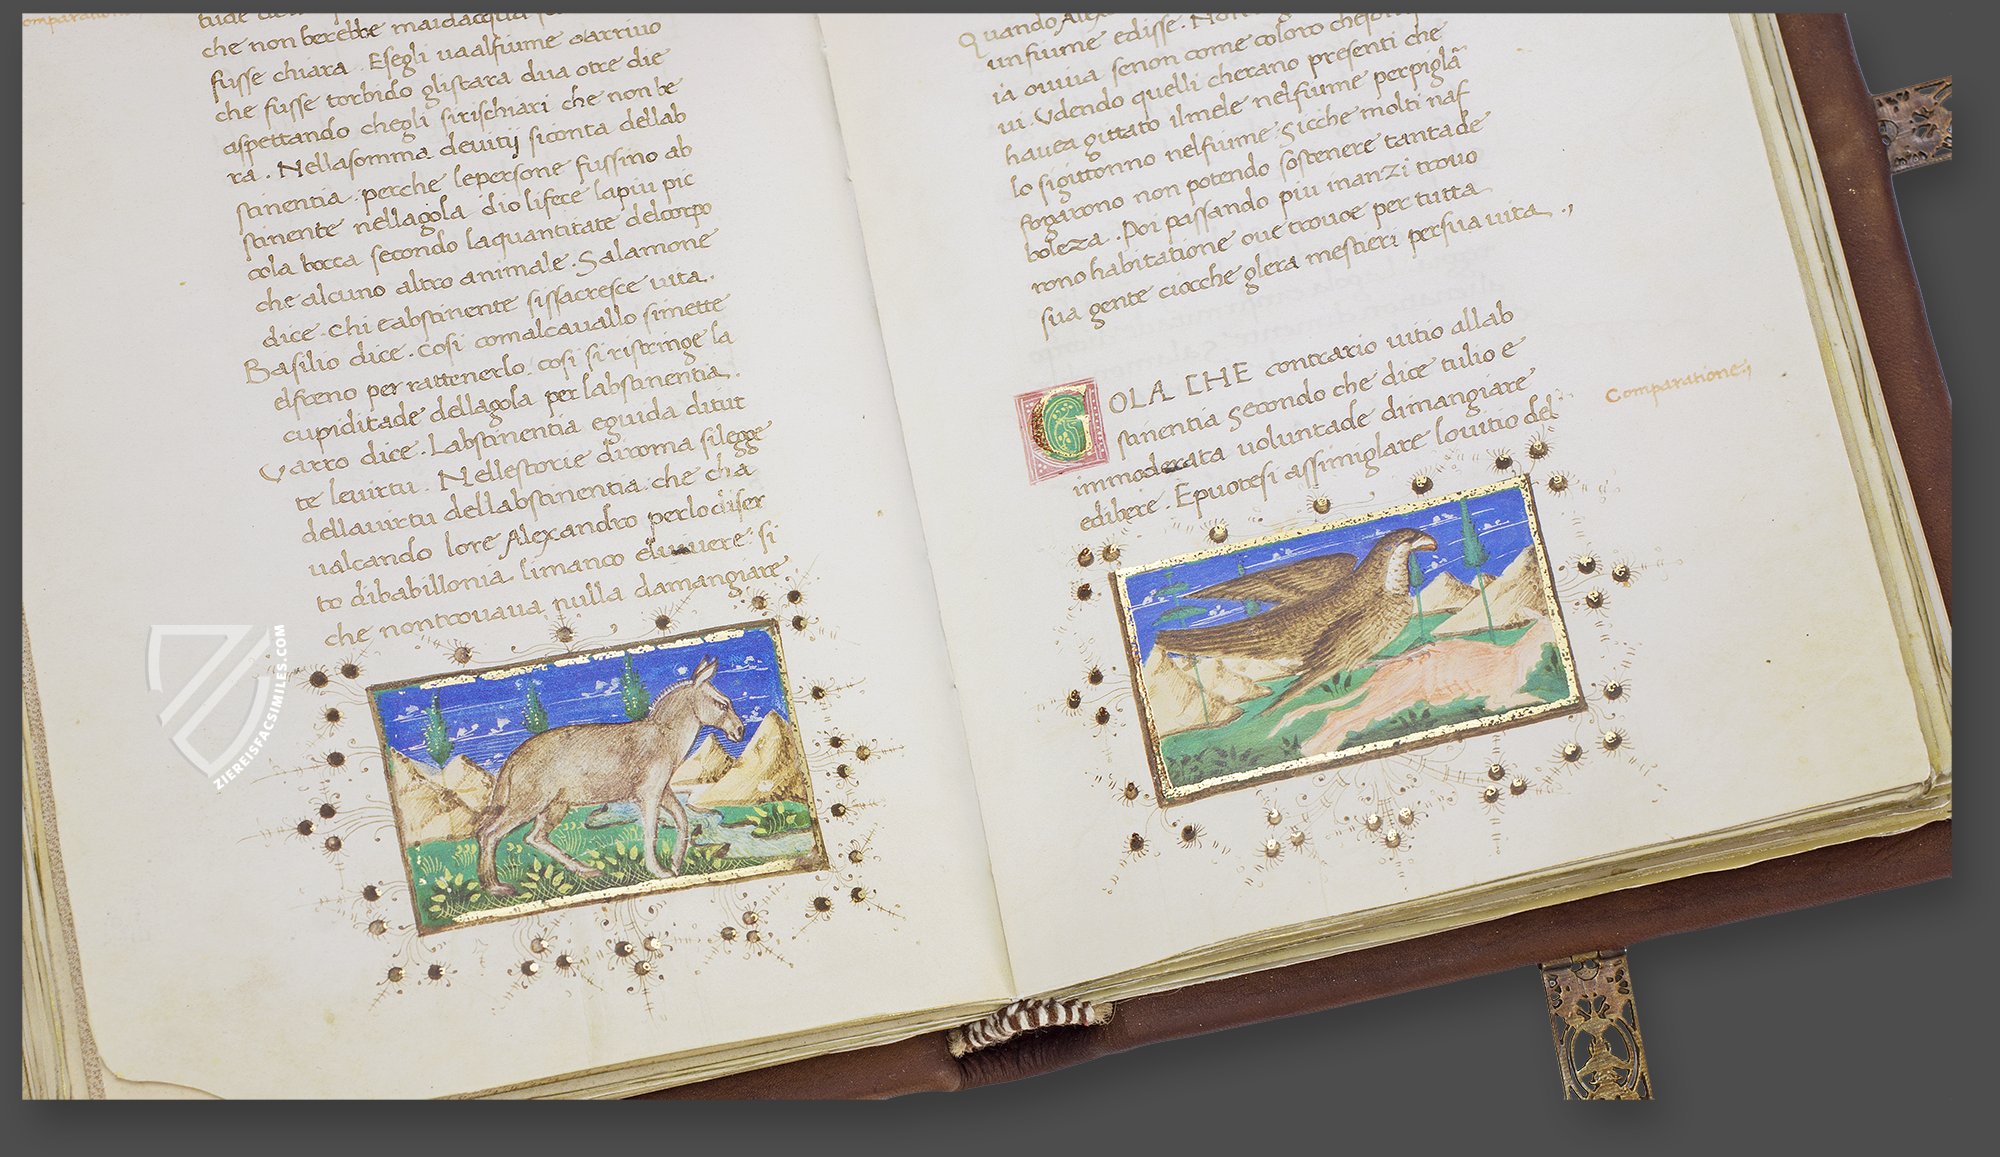 comparatione
che non berebbe maidacqua
fusse chiara . Esegli uaalfiume oarriuo
che fusse torbido glistara dua otre die
aspettando chegli sirischiari che non be
ra . Nellasomma deuitij siconta dellab
stinentia . perche lepersone fussino ab
stinente nellagola dio lifece lapiu pic
cola bocca secondo laquantitate delcorpo
che alcuno altro animale . Salamone
dice . Chi eabstinente sissacresce uita .
Basilio dice . Cosi comalcauallo simette
elfreno per rattenerlo . cosi si ristringe la
cupiditade dellagola per labstinentia .
Varro dice . Labstinentia eguida ditut
te leuirtu . Nellestorie diroma silegge
dellauirtu dellabstinentia . che cha
ualcando lore Alexandro perlodiser
to dibabillonia limanco eluiuere si
che nontrouaua nulla damangiare
Quando
unfiume edisse .
ia ouiua senon come coloro
ui . Vdendo quelli cherano presenti che
hauea gittato ilmele nelfiume perpiglã
lo sigittonno nelfiume . Sicche molti naf
fogarono non potendo sostenere tantade
boleza . Poi passando piu inanzi trouo
rono habitatione oue trouoe per tutta
sua gente ciocche glera mestieri persua uita .,
GOLA CHE contrario uitio allab
stinentia Secondo che dice tulio e
immoderata uoluntade dimangiare
edibere . Epuotesi assimiglare louitio del
Comparatione .,
ZIEREISFACSIMILES.COM